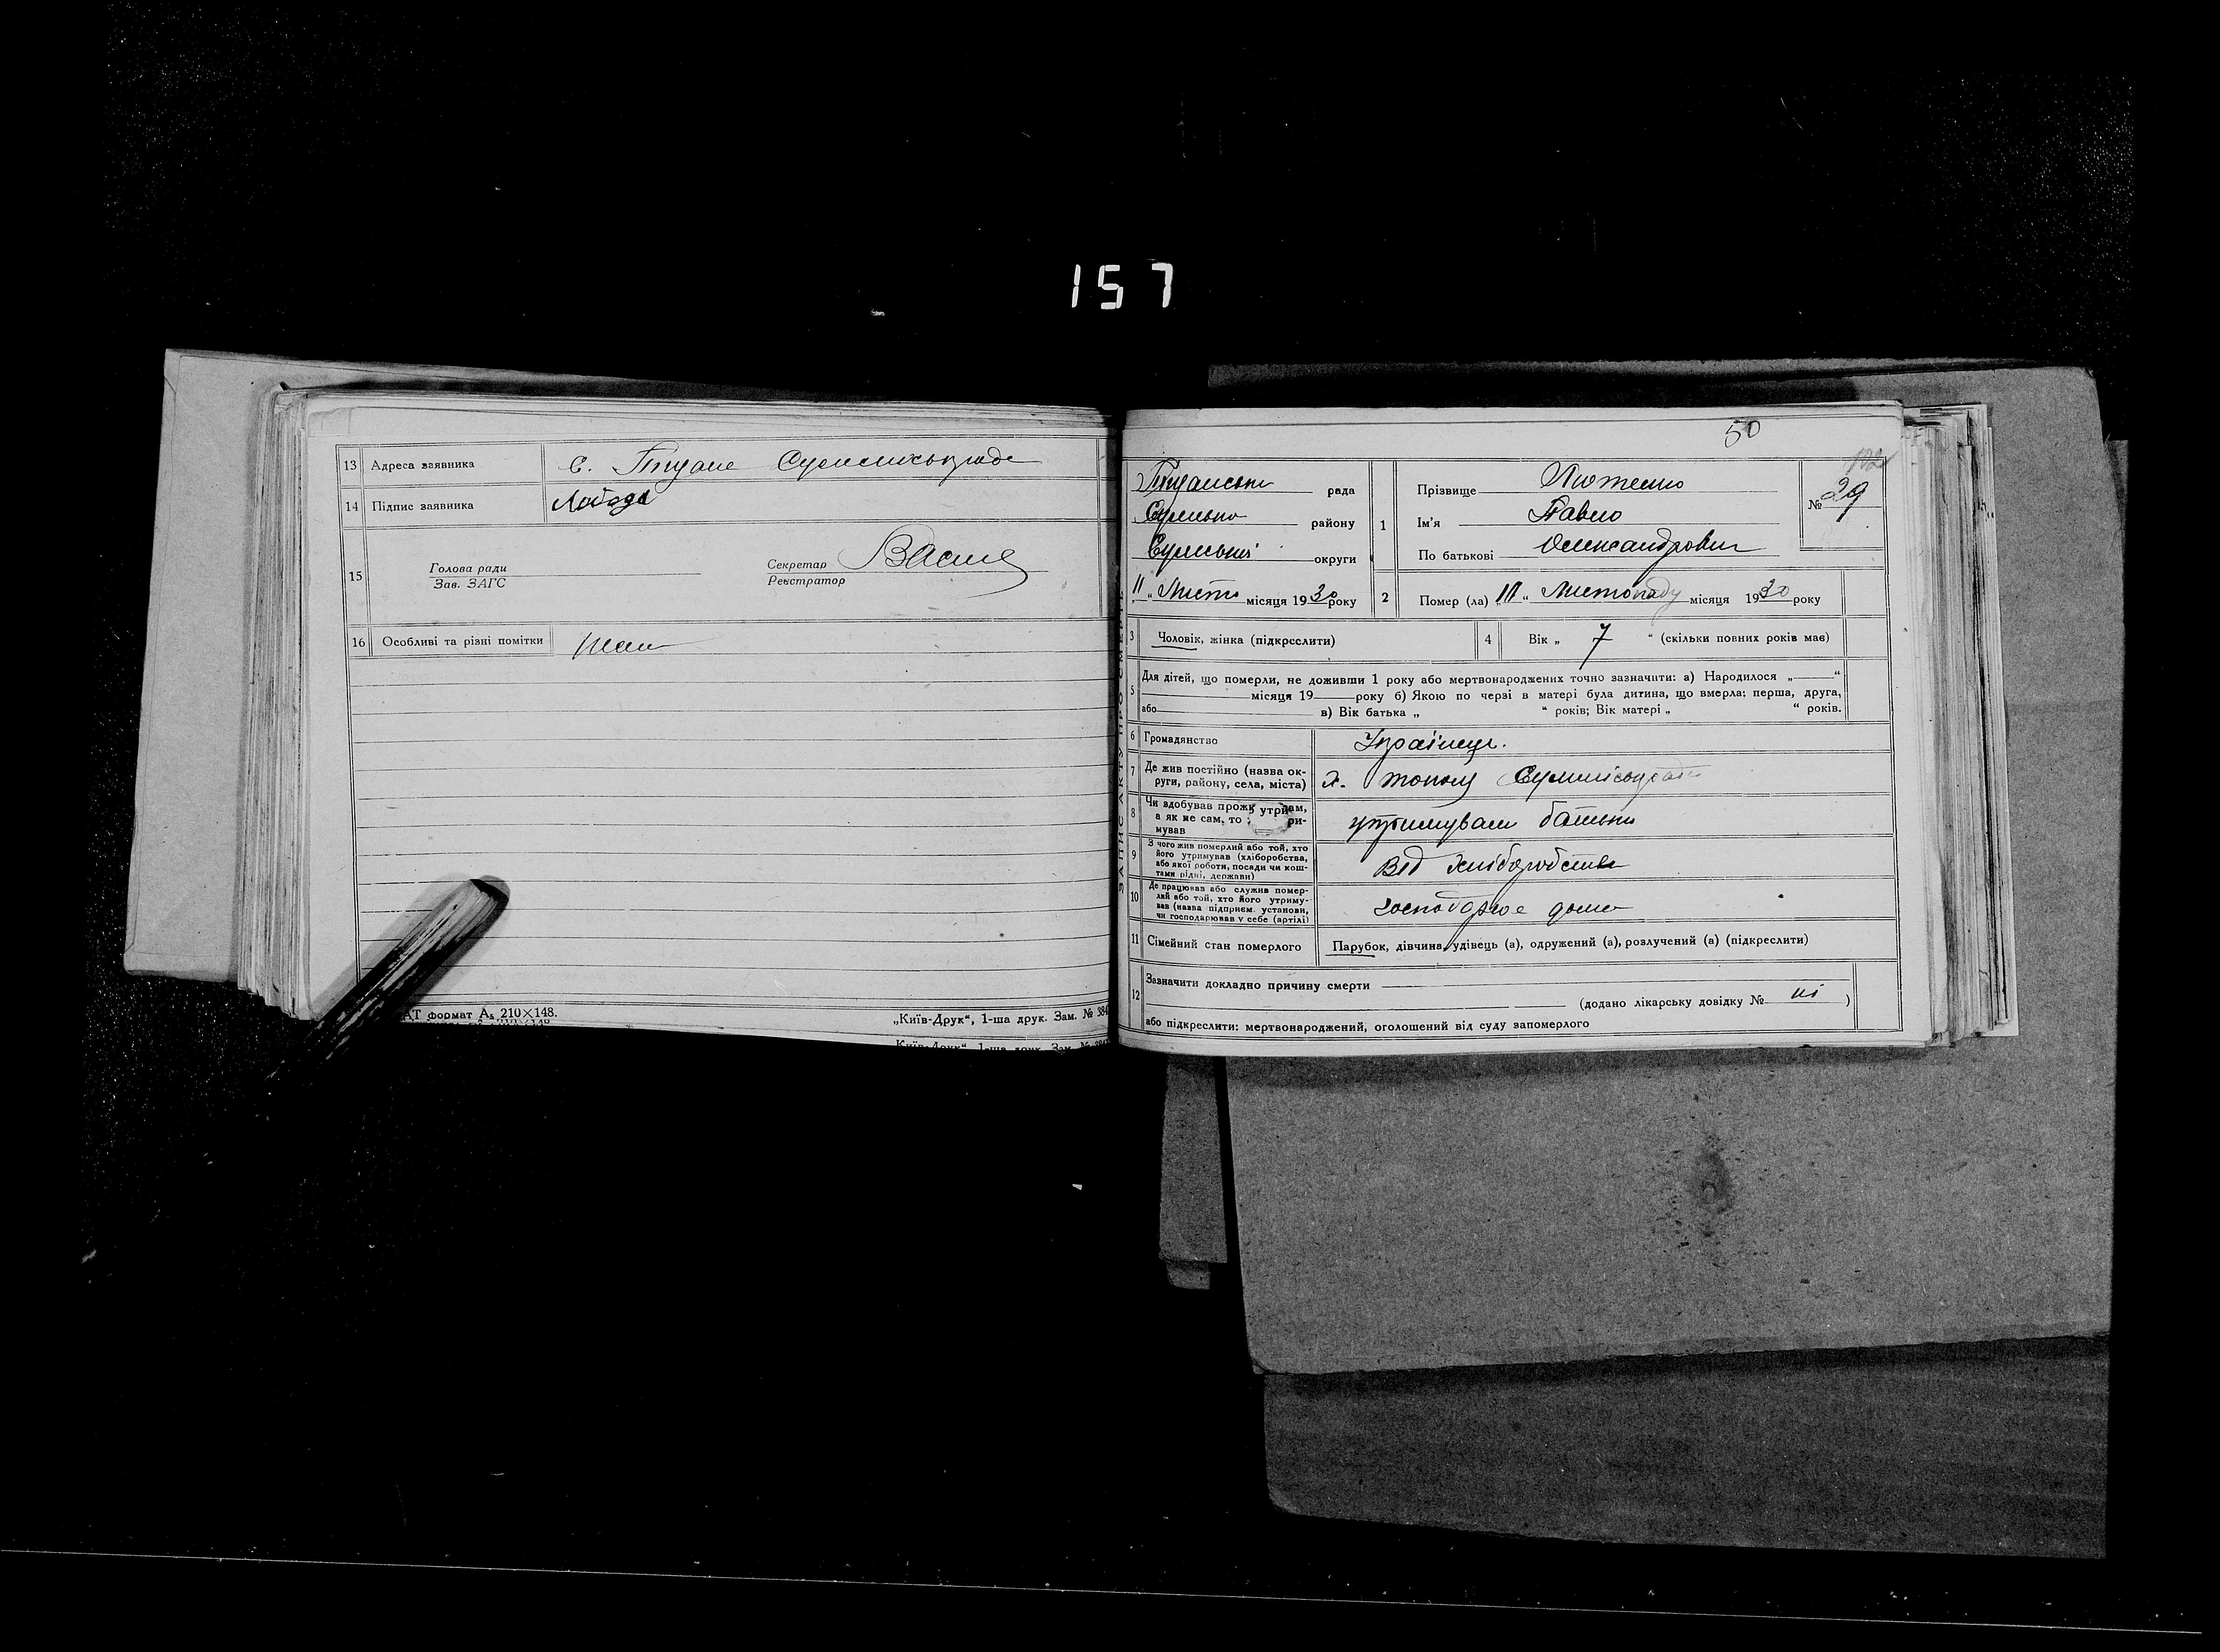 157
13 Адреса заявника с.
14 Підпис заявника Лобода
15 Голова ради
Зав. ЗАГС
Секретар
Реєстратор
16 Особливі та різні помітки
АТ формат А₅ 210×148.
„Київ-Друк“, 1-ша друк. Зам. № 384
50
рада
району
Сумської округи
11 „ Листо місяця 1930 року
1 Прізвище
Ім'я Павло
По батькові Олександрович
№ 29
2 Помер (ла) „11“ Листопаду місяця 1930 року
3 Чоловік, жінка (підкреслити)
4 Вік „ 7 “ (скільки повних років має)
5 Для дітей, що померли, не доживши 1 року або мертвонароджених точно зазначити: а) Народилося „ “
місяця 19 року б) Якою по черзі в матері була дитина, що вмерла: перша, друга,
або в) Вік батька „ “ років; Вік матері „ “ років.
6 Громадянство Українець.
7 Де жив постійно (назва ок-
руги, району, села, міста) х.
8 Чи здобував прож утри сам,
а як не сам, то ри-
мував
утримували батьки
9 З чого жив померлий або той, хто
його утримував (хліборобства,
або якої роботи, посади чи кош-
тами рідні, держави)
від хліборобства
10 Де працював або служив помер-
лий або той, хто його утриму-
вав (назва підприєм. установи,
чи господарював у себе (артілі)
дома
11 Сімейний стан померлого Парубок, дівчина, удівець (а), одружений (а), розлучений (а) (підкреслити)
12 Зазначити докладно причину смерти
(додано лікарську довідку № ні )
або підкреслити: мертвонароджений, оголошений від суду запомерлого